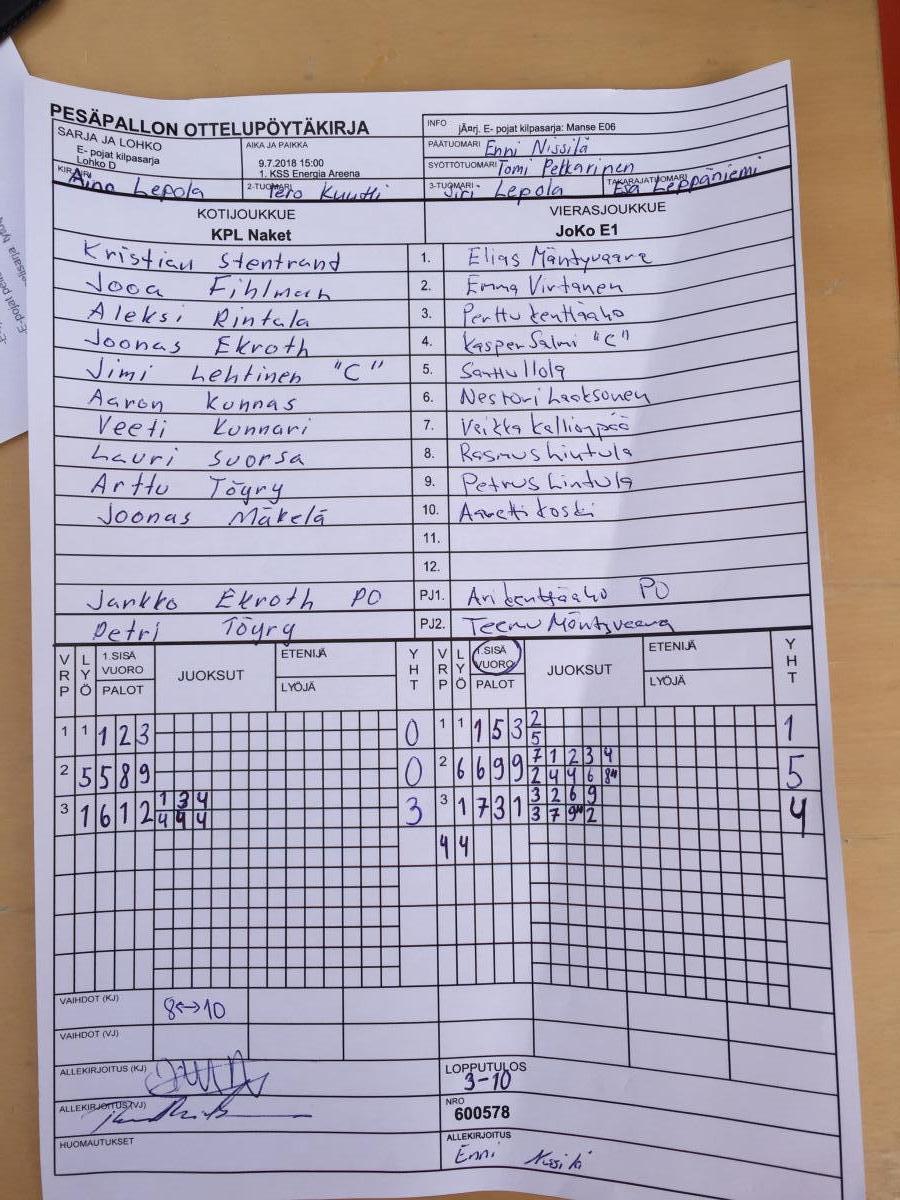 PESÄPALLON OTTELUPÖYTÄKIRJA
SARJA JA LOHKO
E- pojat kilpasarja
Lohko D
AIKA JA PAIKKA
9.7.2018 15:00
1. KSS Energia Areena
INFO jĂ¤rj. E- pojat kilpasarja: Manse E06
PÄÄTUOMARI Enni Nissilä
SYÖTTÖTUOMARI Tomi Pelkarinen
KIRJURI Aino Lepola
2-TUOMARI Tero Kuutti
3-TUOMARI Jiri Lepola
TAKARAJATUOMARI Esa Leppäniemi
KOTIJOUKKUE VIERASJOUKKUE
KPL Naket JoKo E1
Kristian Stentrand 1. Elias Mäntyvaara
Jooa Fihlman 2. Emma Virtanen
Aleksi Rintala 3. Perttu Kenttäaho
Joonas Ekroth 4. Kasper Salmi "C"
Jimi Lehtinen "C" 5. Santtu Ilola
Aaron Kunnas 6. Nestori Laaksonen
Veeti Kunnari 7. Veikka Kallionpää
Lauri Suorsa 8. Rasmus Lintula
Arttu Töyry 9. Petrus Lintula
Joonas Mäkelä 10. Koski
11.
12.
Jarkko Ekroth PO PJ1. Ari Kenttäaho PO
Petri Töyry PJ2. Teemu Mäntyvaara
VRP LYÖ 1.SISÄ VUORO PALOT JUOKSUT ETENIJÄ LYÖJÄ YHT VRP LYÖ 1.SISÄ VUORO PALOT JUOKSUT ETENIJÄ LYÖJÄ YHT
1 1 1 2 3 0 1 1 1 5 3 2 1
5
2 5 5 8 9 0 2 6 6 9 9 7 1 2 3 4 5
2 4 4 6 8"
3 1 6 1 2 1 3 4 3 3 1 7 3 1 3 2 6 9 4
4 4 4 3 7 9" 2
4 4
VAIHDOT (KJ) 8↔10
VAIHDOT (VJ)
ALLEKIRJOITUS (KJ)
LOPPUTULOS
3-10
ALLEKIRJOITUS (VJ)
NRO
600578
HUOMAUTUKSET
ALLEKIRJOITUS
Enni Nissilä